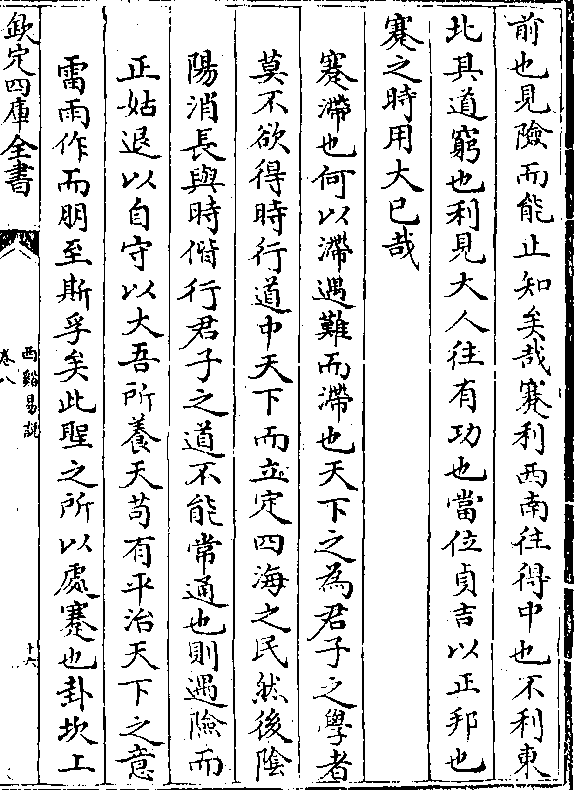 前也見險而能止知矣哉蹇利西南往得中也不利東
北其道窮也利見大人往有功也當位貞吉以正邦也
蹇之時用大已哉
蹇滯也何以滯遇難而滯也天下之為君子之學者
莫不欲得時行道中天下而立定四海之民然後陰
陽消長與時偕行君子之道不能常通也則遇險而
正姑退以自守以大吾所養天苟有平治天下之意
雷雨作而朋至斯孚矣此聖之所以處蹇也卦坎上
欽定四庫全書
西谿易說
卷八
十六